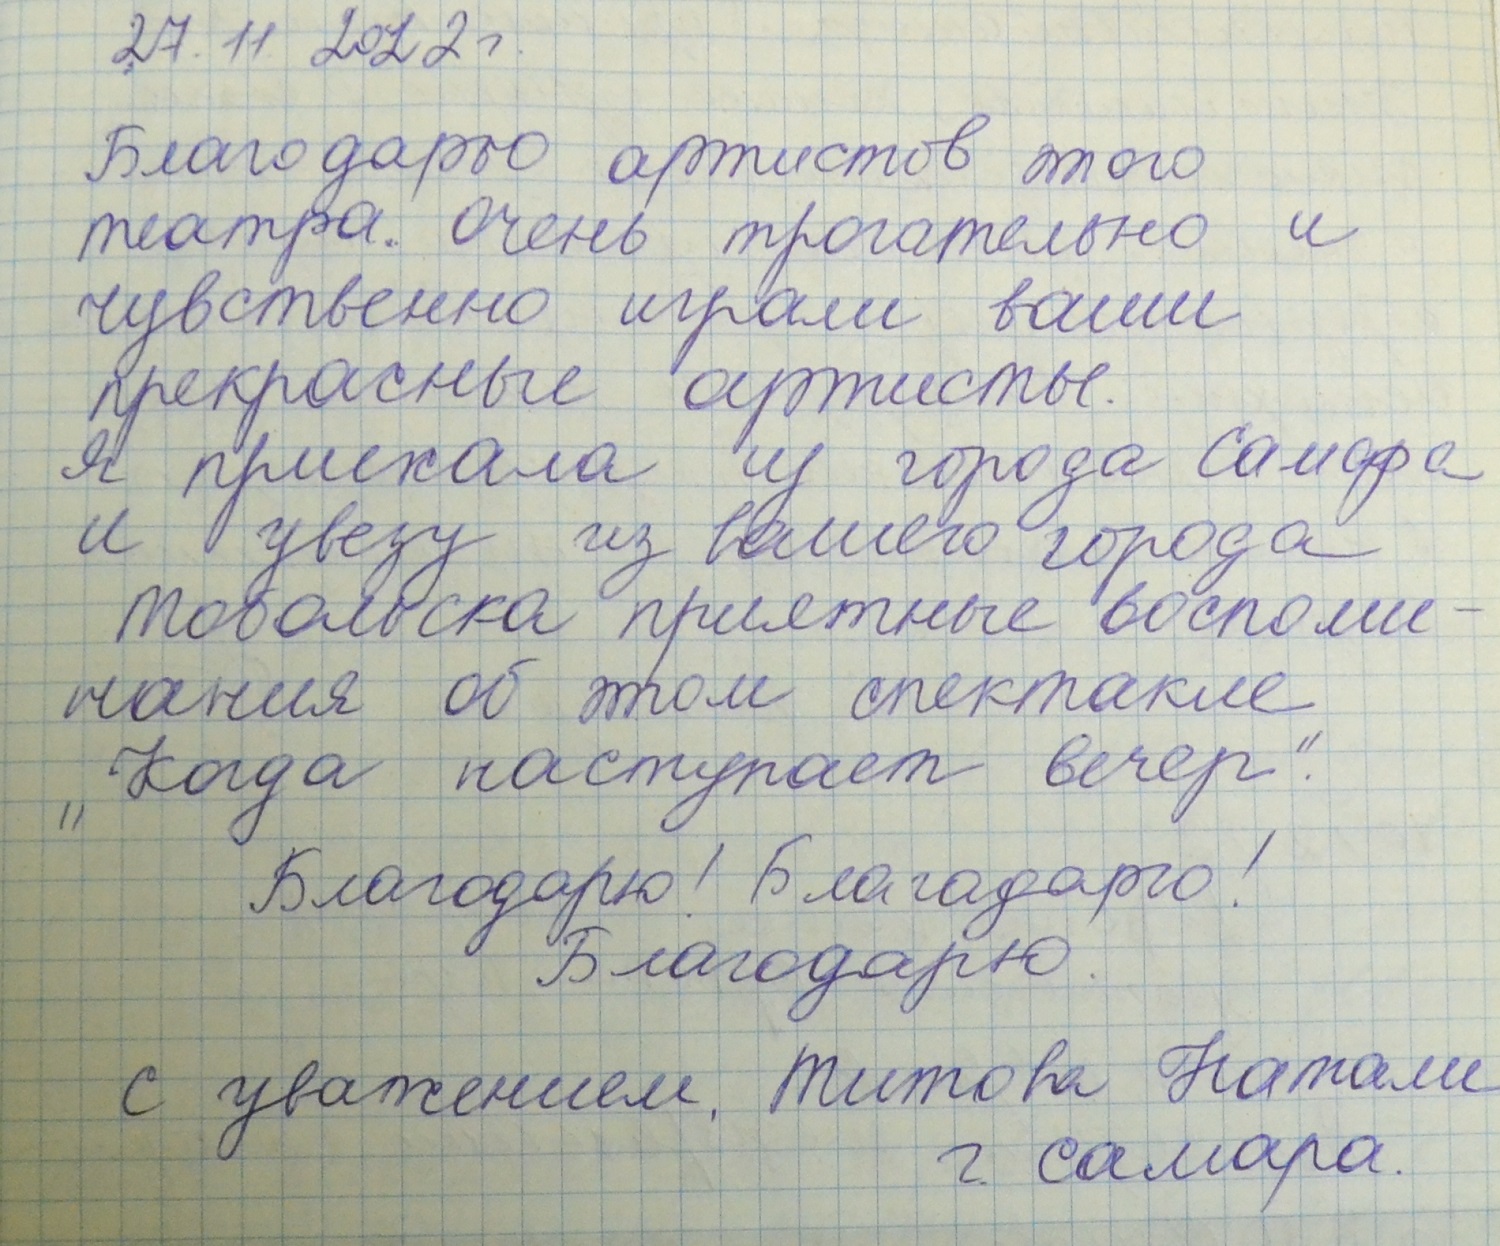 27. 11 2022 г.
Благодарю артистов этого
театра. Очень трогательно и
чувственно играли ваши
прекрасные артисты.
Я приехала из города Самара
и увезу из вашего города
Тобольска приятные воспоми-
нания об этом спектакле
„Когда наступает вечер".
Благодарю! Благадарю!
Благодарю.
С уважением, Титова Натали
г. Самара.